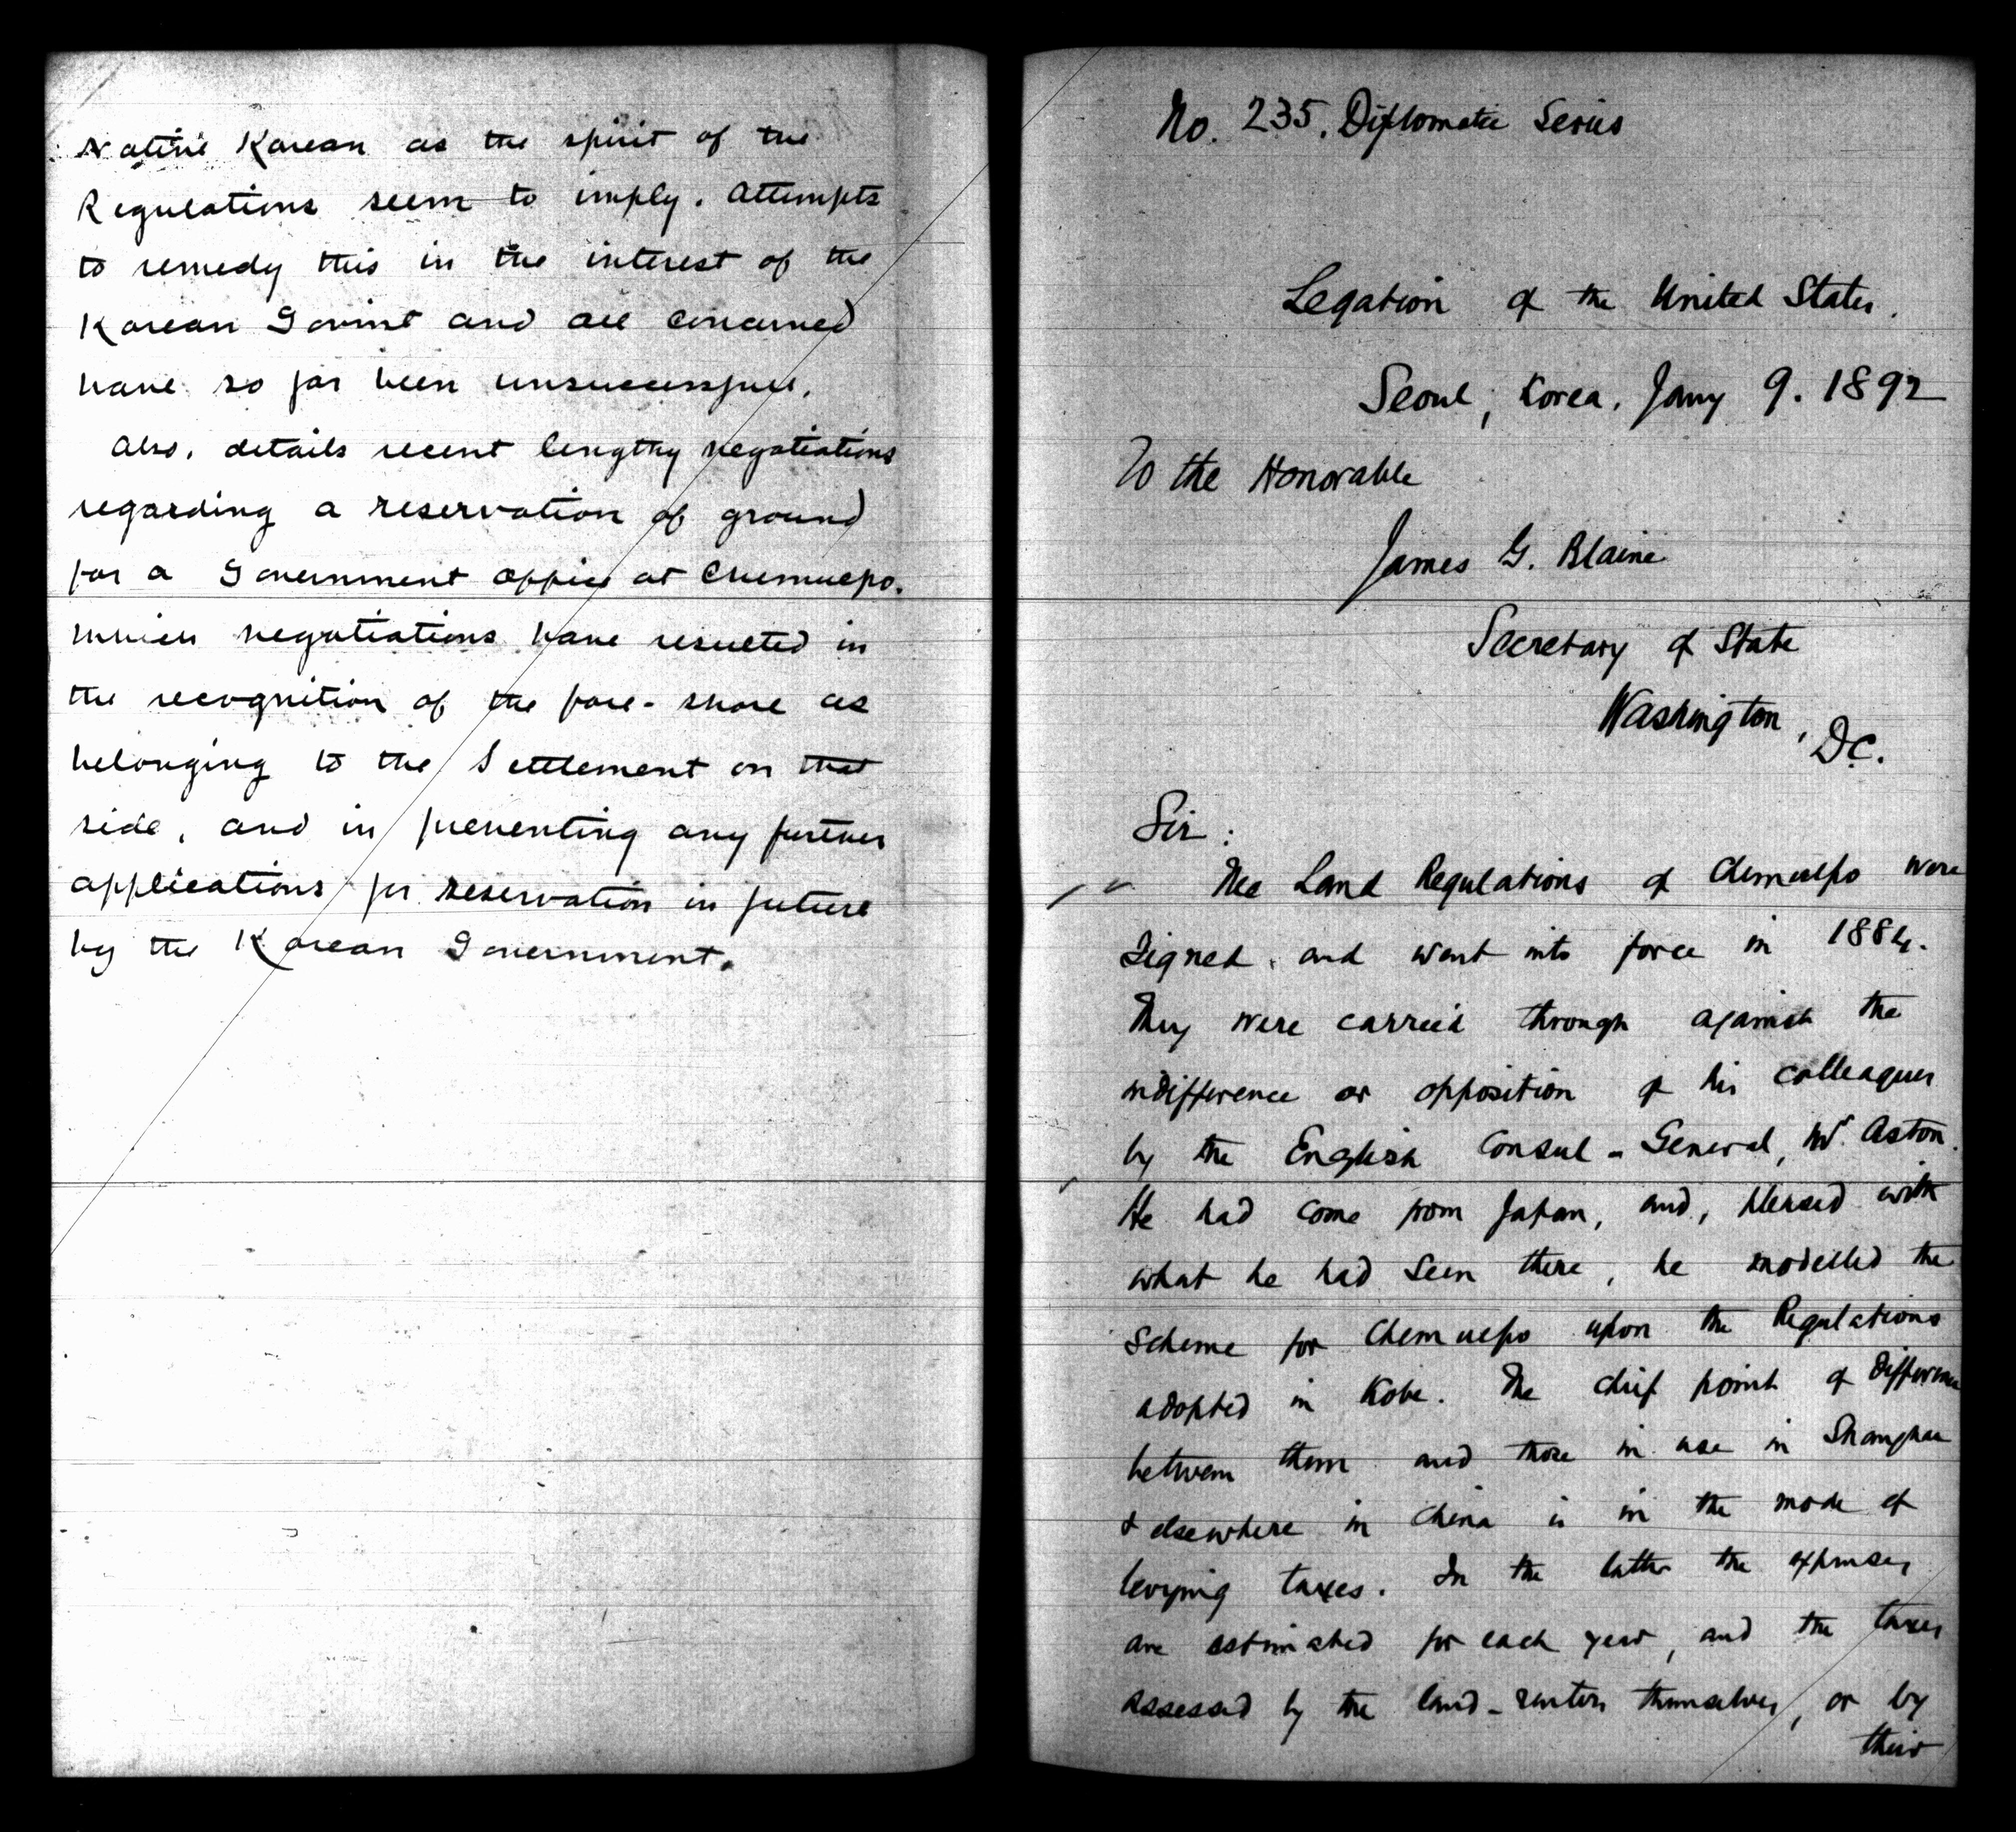 Native Korean as the spirit of the
Regulations seem to imply. Attempts
to remedy this in the interest of the
Korean Govmnt and all concerned
have so far been unsuccessfull.
Also, details recent lengthy negotiations
regarding a reservation of ground
for a Government office at Chemulpo.
which negotiations have resulted in
the recognition of the fore-shore as
belonging to the Settlement on that
side, and in preventing any further
applications for reservation in future
by the Korean Government.
No. 235. Diplomatic Series
Legation of the United States.
Seoul, Korea. Jany 9. 1892
To the Honorable
James G. Blaine
Secretary of State
Washington,
D.C.
Sir:
The Land Regulations of Chemulpo were
signed and went into force in 1884.
They were carried through against the
indifference or opposition of his colleagues
by the English Consul-General, Mr. Aston.
He had come from Japan, and, pleased with
what he had seen there, he modelled the
scheme for Chemulpo upon the Regulations
adopted in Kobe. The chief point of difference
between them and those in use in Shanghai
& elsewhere in China is in the mode of
levying taxes. In the latter the expenses
are estimated for each year, and the taxes
assessed by the land-renters themselves, or by
their